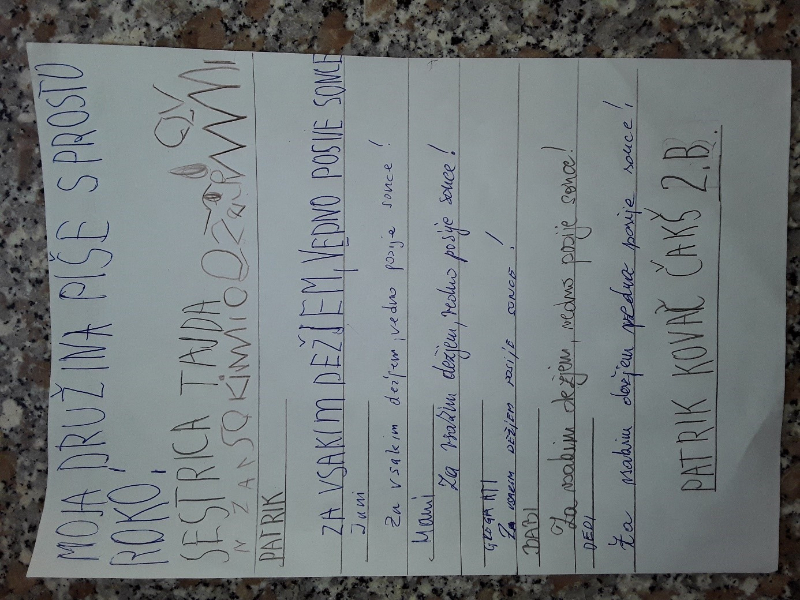 MOJA DRUŽINA PIŠE S PROSTO
ROKO,
SESTRICA TAJDA
PATRIK
ZA VSAKIM DEŽJEM, VEDNO POSIJE SONCE
Za vsakim dežjem, vedno posije sonce!
Mami
Za vsakim dežjem, vedno posije sonce!
Za vsakim dežjem posije sonce!
BABI
Za vsakim dežjem, vedno posije sonce!
DEDI
Za vsakim dežjem vedno posije sonce!
PATRIK KOVAČ ČAKŠ 2.B